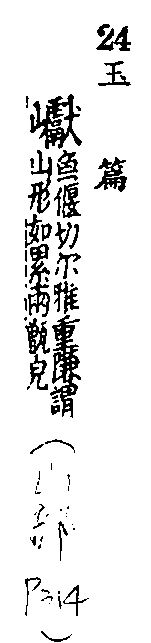 24
玉篇
巘魚偃切尔雅重巘謂
山形如累兩甑皃
(山部
P314)